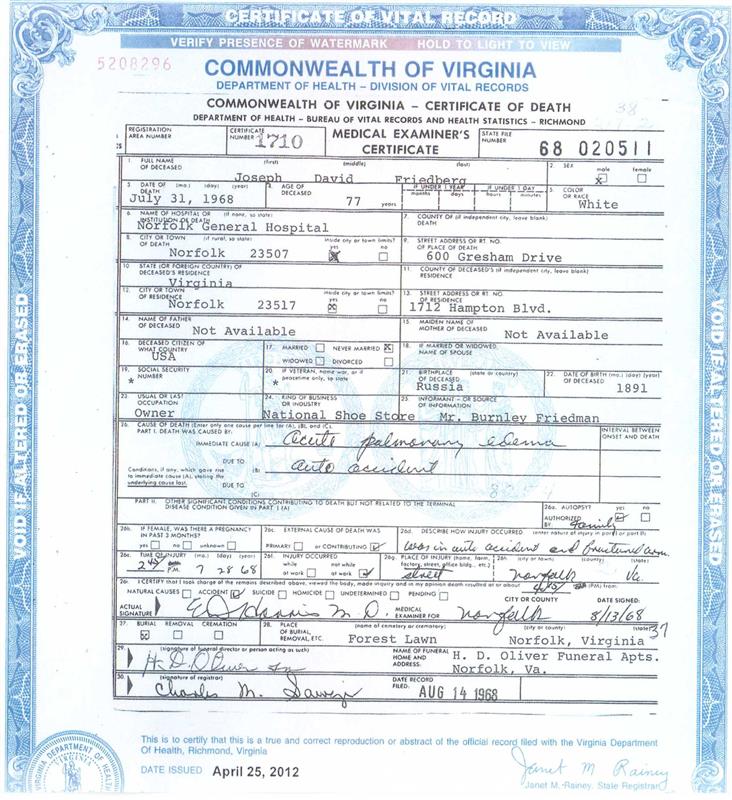 CERTIFICATE OF VITAL RECORD
VERIFY PRESENCE OF WATERMARK HOLD TO LIGHT TO VIEW
5208296
COMMONWEALTH OF VIRGINIA
DEPARTMENT OF HEALTH – DIVISION OF VITAL RECORDS
COMMONWEALTH OF VIRGINIA – CERTIFICATE OF DEATH 38
DEPARTMENT OF HEALTH – BUREAU OF VITAL RECORDS AND HEALTH STATISTICS – RICHMOND
REGISTRATION AREA NUMBER CERTIFICATE NUMBER 1710 MEDICAL EXAMINER'S CERTIFICATE STATE FILE NUMBER 68 020511
1. FULL NAME OF DECEASED (first) (middle) (last) 2. SEX male female
Joseph David Friedberg x
3. DATE OF DEATH (mo.) (day) (year) 4. AGE OF DECEASED IF UNDER 1 YEAR months days IF UNDER 1 DAY hours minutes 5. COLOR OR RACE
July 31, 1968 77 years White
6. NAME OF HOSPITAL OR INSTITUTION OF DEATH (if none, so state) 7. COUNTY OF DEATH (if independent city, leave blank)
Norfolk General Hospital
8. CITY OR TOWN OF DEATH (if rural, so state) inside city or town limits? yes no 9. STREET ADDRESS OR RT. NO. OF PLACE OF DEATH
Norfolk 23507 x 600 Gresham Drive
10. STATE (OR FOREIGN COUNTRY) OF DECEASED'S RESIDENCE 11. COUNTY OF DECEASED'S RESIDENCE (if independent city, leave blank)
Virginia
12. CITY OR TOWN OF RESIDENCE inside city or town limits? yes no 13. STREET ADDRESS OR RT. NO. OF RESIDENCE
Norfolk 23517 x 1712 Hampton Blvd.
14. NAME OF FATHER OF DECEASED 15. MAIDEN NAME OF MOTHER OF DECEASED
Not Available Not Available
16. DECEASED CITIZEN OF WHAT COUNTRY 17. MARRIED NEVER MARRIED x WIDOWED DIVORCED 18. IF MARRIED OR WIDOWED, NAME OF SPOUSE
USA
19. SOCIAL SECURITY NUMBER 20. IF VETERAN, name war, or if peacetime only, so state 21. BIRTHPLACE OF DECEASED (state or country) 22. DATE OF BIRTH (mo.) (day) (year)
* * Russia 1891
23. USUAL OR LAST OCCUPATION 24. KIND OF BUSINESS OR INDUSTRY 25. INFORMANT - OR SOURCE OF INFORMATION
Owner National Shoe Store Mr. Burnley Friedman
26. CAUSE OF DEATH (Enter only one cause per line for (A), (B), and (C). INTERVAL BETWEEN ONSET AND DEATH
PART I. DEATH WAS CAUSED BY:
IMMEDIATE CAUSE (A) Acute pulmonary edema
DUE TO
Conditions, if any, which gave rise to immediate cause (A), stating the underlying cause last. (B) auto accident
DUE TO
(C)
PART II. OTHER SIGNIFICANT CONDITIONS CONTRIBUTING TO DEATH BUT NOT RELATED TO THE TERMINAL DISEASE CONDITION GIVEN IN PART I (A) 26a. AUTOPSY? yes no
AUTHORIZED BY family
26b. IF FEMALE, WAS THERE A PREGNANCY IN PAST 3 MONTHS? yes no unknown 26c. EXTERNAL CAUSE OF DEATH WAS PRIMARY or CONTRIBUTING 26d. DESCRIBE HOW INJURY OCCURRED (enter nature of injury in part I or part II)
was in auto accident and fractured arm.
26e. TIME OF INJURY (mo.) (day) (year) 26f. INJURY OCCURRED while at work not while at work 26g. PLACE OF INJURY (home, farm, factory, street, office bldg., etc.) 26h. (city or town) (county) (state)
P.M. 7 28 68 street Norfolk Va.
26i. I CERTIFY that I took charge of the remains described above, viewed the body, made inquiry and in my opinion death resulted at or about (PM) from:
NATURAL CAUSES ACCIDENT SUICIDE HOMICIDE UNDETERMINED PENDING CITY OR COUNTY DATE SIGNED:
ACTUAL SIGNATURE M.D. MEDICAL EXAMINER FOR Norfolk 8/13/68
27. BURIAL REMOVAL CREMATION 28. PLACE OF BURIAL, REMOVAL, ETC. (name of cemetery or crematory) (city or county) (state) 37
x Forest Lawn Norfolk, Virginia
29. (signature of funeral director or person acting as such) NAME OF FUNERAL HOME AND ADDRESS: H. D. Oliver Funeral Apts.
H. D. Oliver Norfolk, Va.
30. (signature of registrar) DATE RECORD FILED: AUG 14 1968
Charles M.
This is to certify that this is a true and correct reproduction or abstract of the official record filed with the Virginia Department
Of Health, Richmond, Virginia
DATE ISSUED April 25, 2012
Janet M Rainey
Janet M. Rainey, State Registrar
VOID IF ALTERED OR ERASED
VOID IF ALTERED OR ERASED
VIRGINIA DEPARTMENT OF HEALTH
VIRGINIA